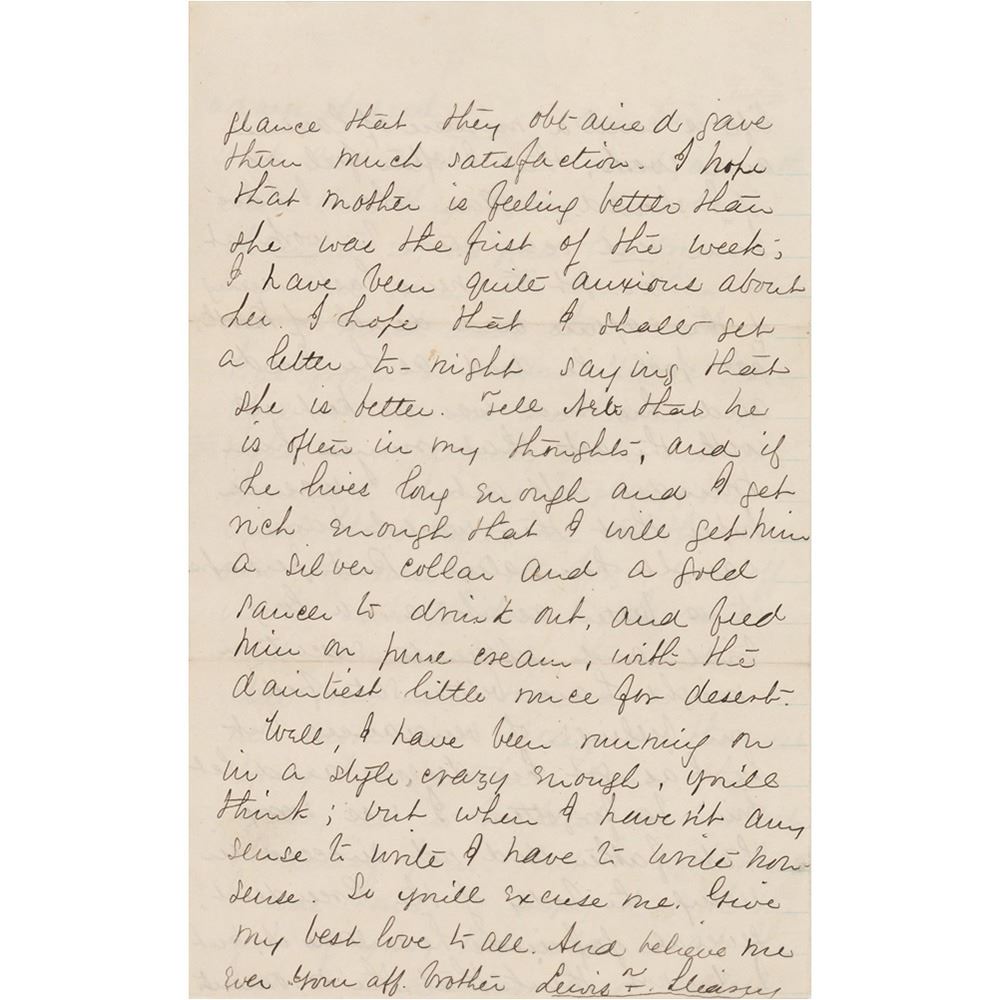 glance that they obtained gave
them much satisfaction. I hope
that mother is feeling better than
she was the first of the week;
I have been quite anxious about
her. I hope that I shall get
a letter to-night saying that
she is better. Tell that he
is often in my thoughts, and if
he lives long enough and I get
rich enough that I will get him
a silver collar and a gold
saucer to drink out, and feed
him on pure cream, with the
daintiest little mice for desert.
Well, I have been running on
in a style, crazy enough, you'll
think; but when I haven't any
sense to write I have to write non-
sense. So you'll excuse me. Give
my best love to all. And believe me
Ever your aff. brother Lewis